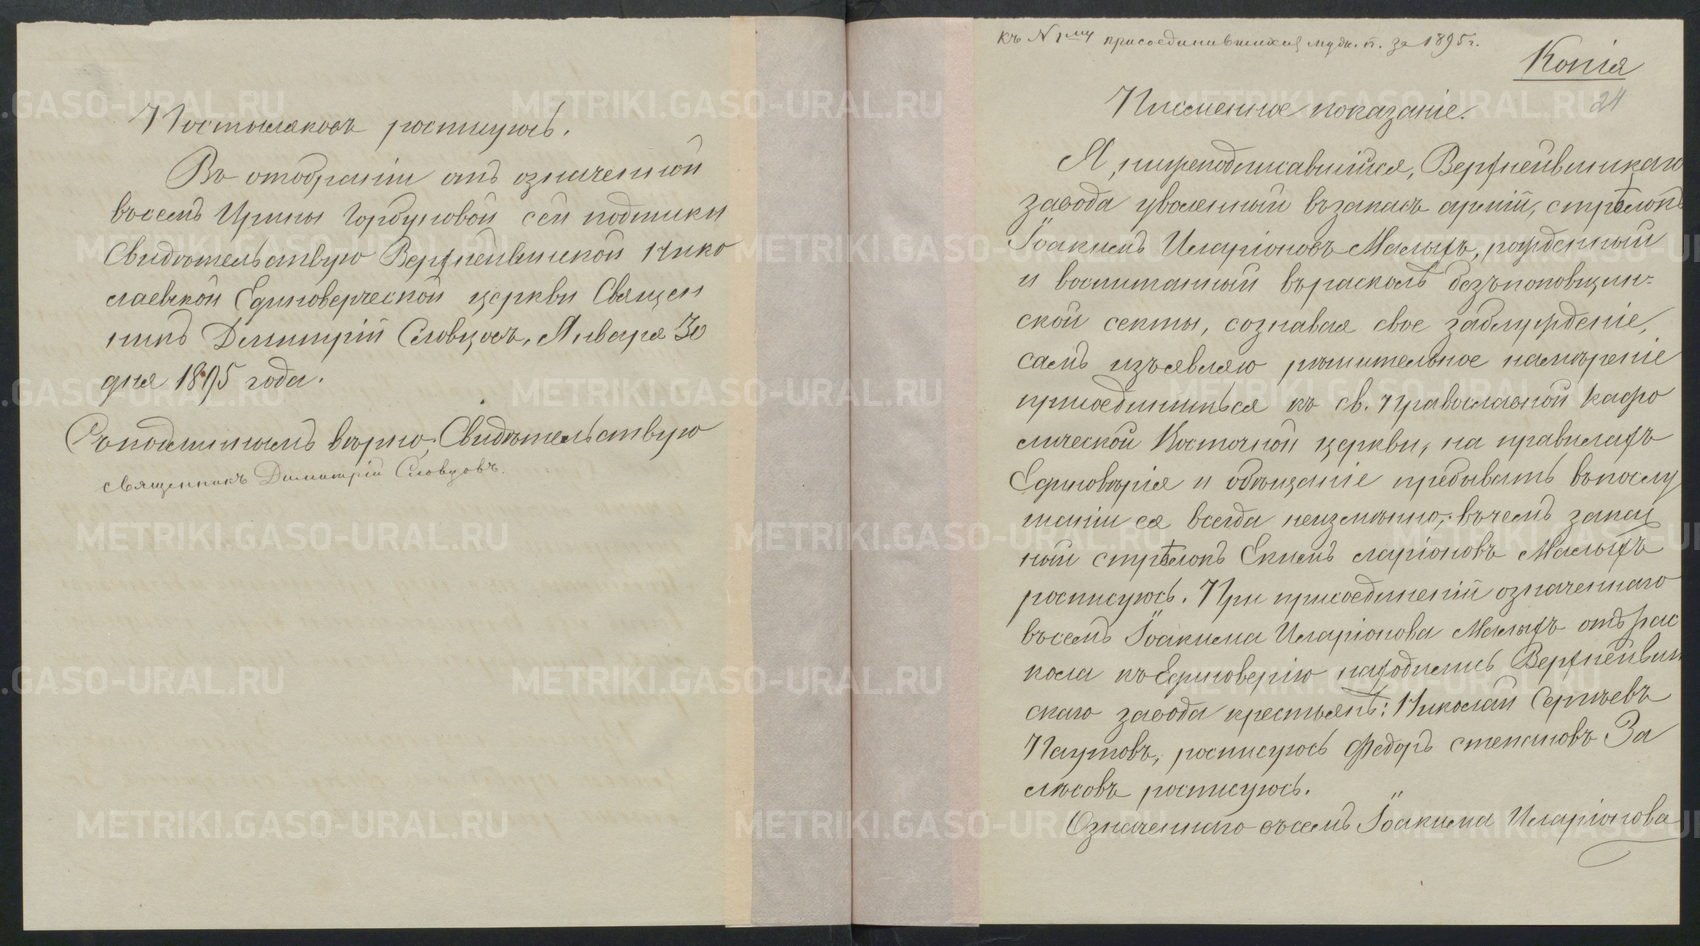 Постыляковъ росписуюсь.
Въ отобраніи отъ означенной
въ семъ Ирины Горбуновой сей подписки
Свидѣтельствую Верхнейвинской Нико
лаевской Единоверческой церкви Священ
никъ Димитрій Словцовъ, Января 30
дня 1895 года.
Съ подлиннымъ вѣрно, Свидѣтельствую
священникъ Димитрій Словцовъ.
къ № 1му присоединившихся муж. п. за 1895 г.
Копія
24
Письменное показаніе.
Я, нижеподписавшійся, Верхнейвинскаго
завода уволенный въ запасъ арміи, стрѣлокъ
Іоакимъ Иларіоновъ Малыхъ, рожденный
и воспитанный въ расколѣ безъпоповщин-
ской секты, сознавая свое заблужденіе,
самъ изъявляю решительное намѣреніе
присоединиться къ св. Православной Кафо
лической Восточной церкви, на правилахъ
Единовѣрія и обѣщаніе пребывать въ послу
шаніи ея всегда неизмѣнно; въ чемъ запас
ный стрѣлокъ Екимъ ларіоновъ Малыхъ
росписуюсь. При присоединеніи означеннаго
въ семъ Іоакима Иларіонова Малыхъ отъ рас
кола къ Единоверію находились Верхнейвин
скаго завода крестьянъ: Николай Сергѣевъ
Паутовъ, росписуюсь Федоръ степановъ За
лѣсовъ росписуюсь.
Означеннаго въ семъ Іоакима Иларіонова
METRIKI.GASO-URAL.RU